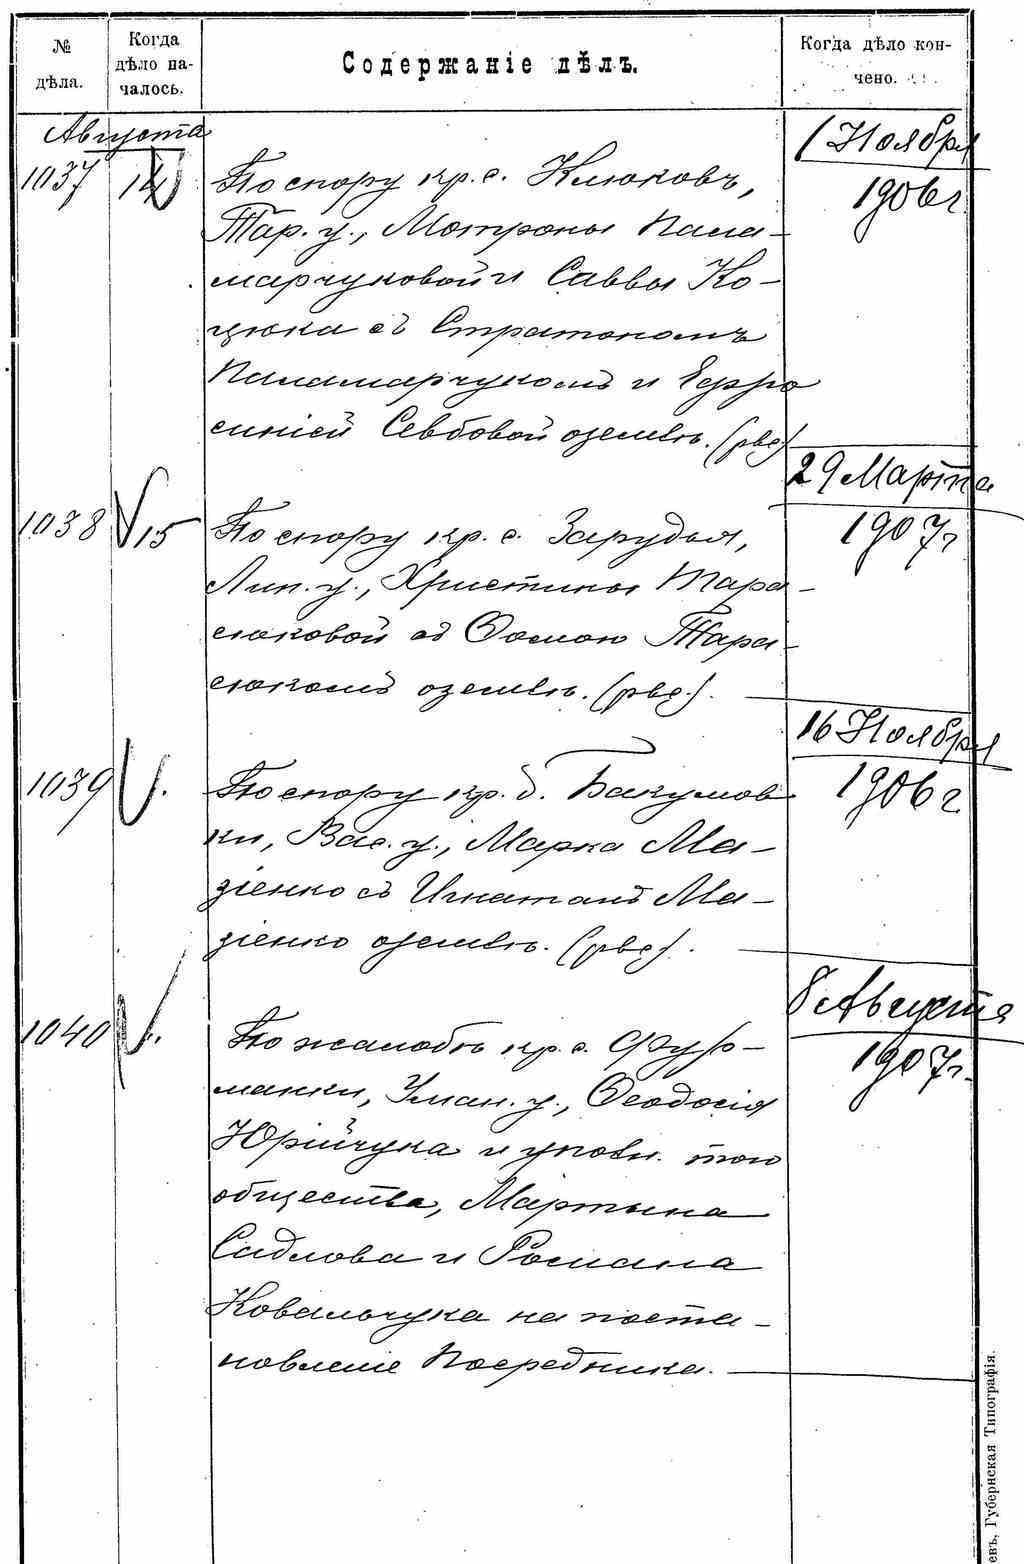 № дѣла.
Когда дѣло на-
чалось.
Содержаніе дѣлъ.
Когда дѣло кон-
чено.
Августа
1037 14 По спору кр. с. Клюковъ, 1 Ноября
Тар. у., Мотроны Пала- 1906 г.
марчуковой и Саввы Ко-
цюка съ Стратономъ
Паламарчукомъ и Ефро
синіей Севбовой о землѣ. (рвс)
29 Марта
1038 15 По спору кр. с. Зарудья, 1907 г.
Лип. у., Христины Тара-
сюковой съ Ѳомою Тара-
сюкомъ о землѣ. (рвс.).
16 Ноября
1039 По спору кр. д. Бакумов 1906 г.
ки, Вас. у., Марка Ма-
зіенко съ Игнатомъ Ма-
зіенко о землѣ. (рвс).
8 Августа
1040 По жалобѣ кр. с. Фур- 1907 г.
манки, Уман. у., Ѳеодосія
Юрійчука и уповн. того
общества, Мартына
Садлова и Романа
Ковальчука на поста-
новленіе Посредника.
евъ, Губернская Типографія.